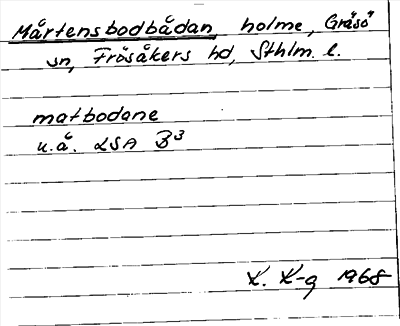 Mårtensbodbådan holme, Gräsö
sn, Frösåkers hd, Sthlm. l.
matbodane
u.å. LSA B3
K. K-g 1968